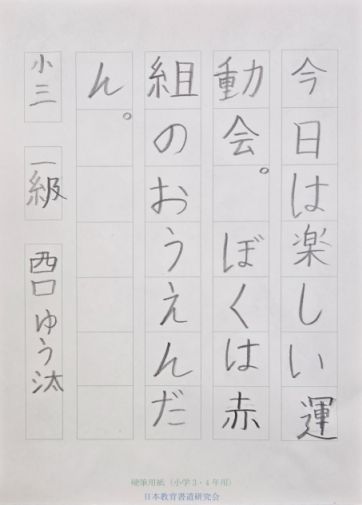 今日は楽しい運
動会。ぼくは赤
組のおうえんだ
ん。
小三 一級 西口ゆう汰
硬筆用紙（小学3・4年用）
日本教育書道研究会